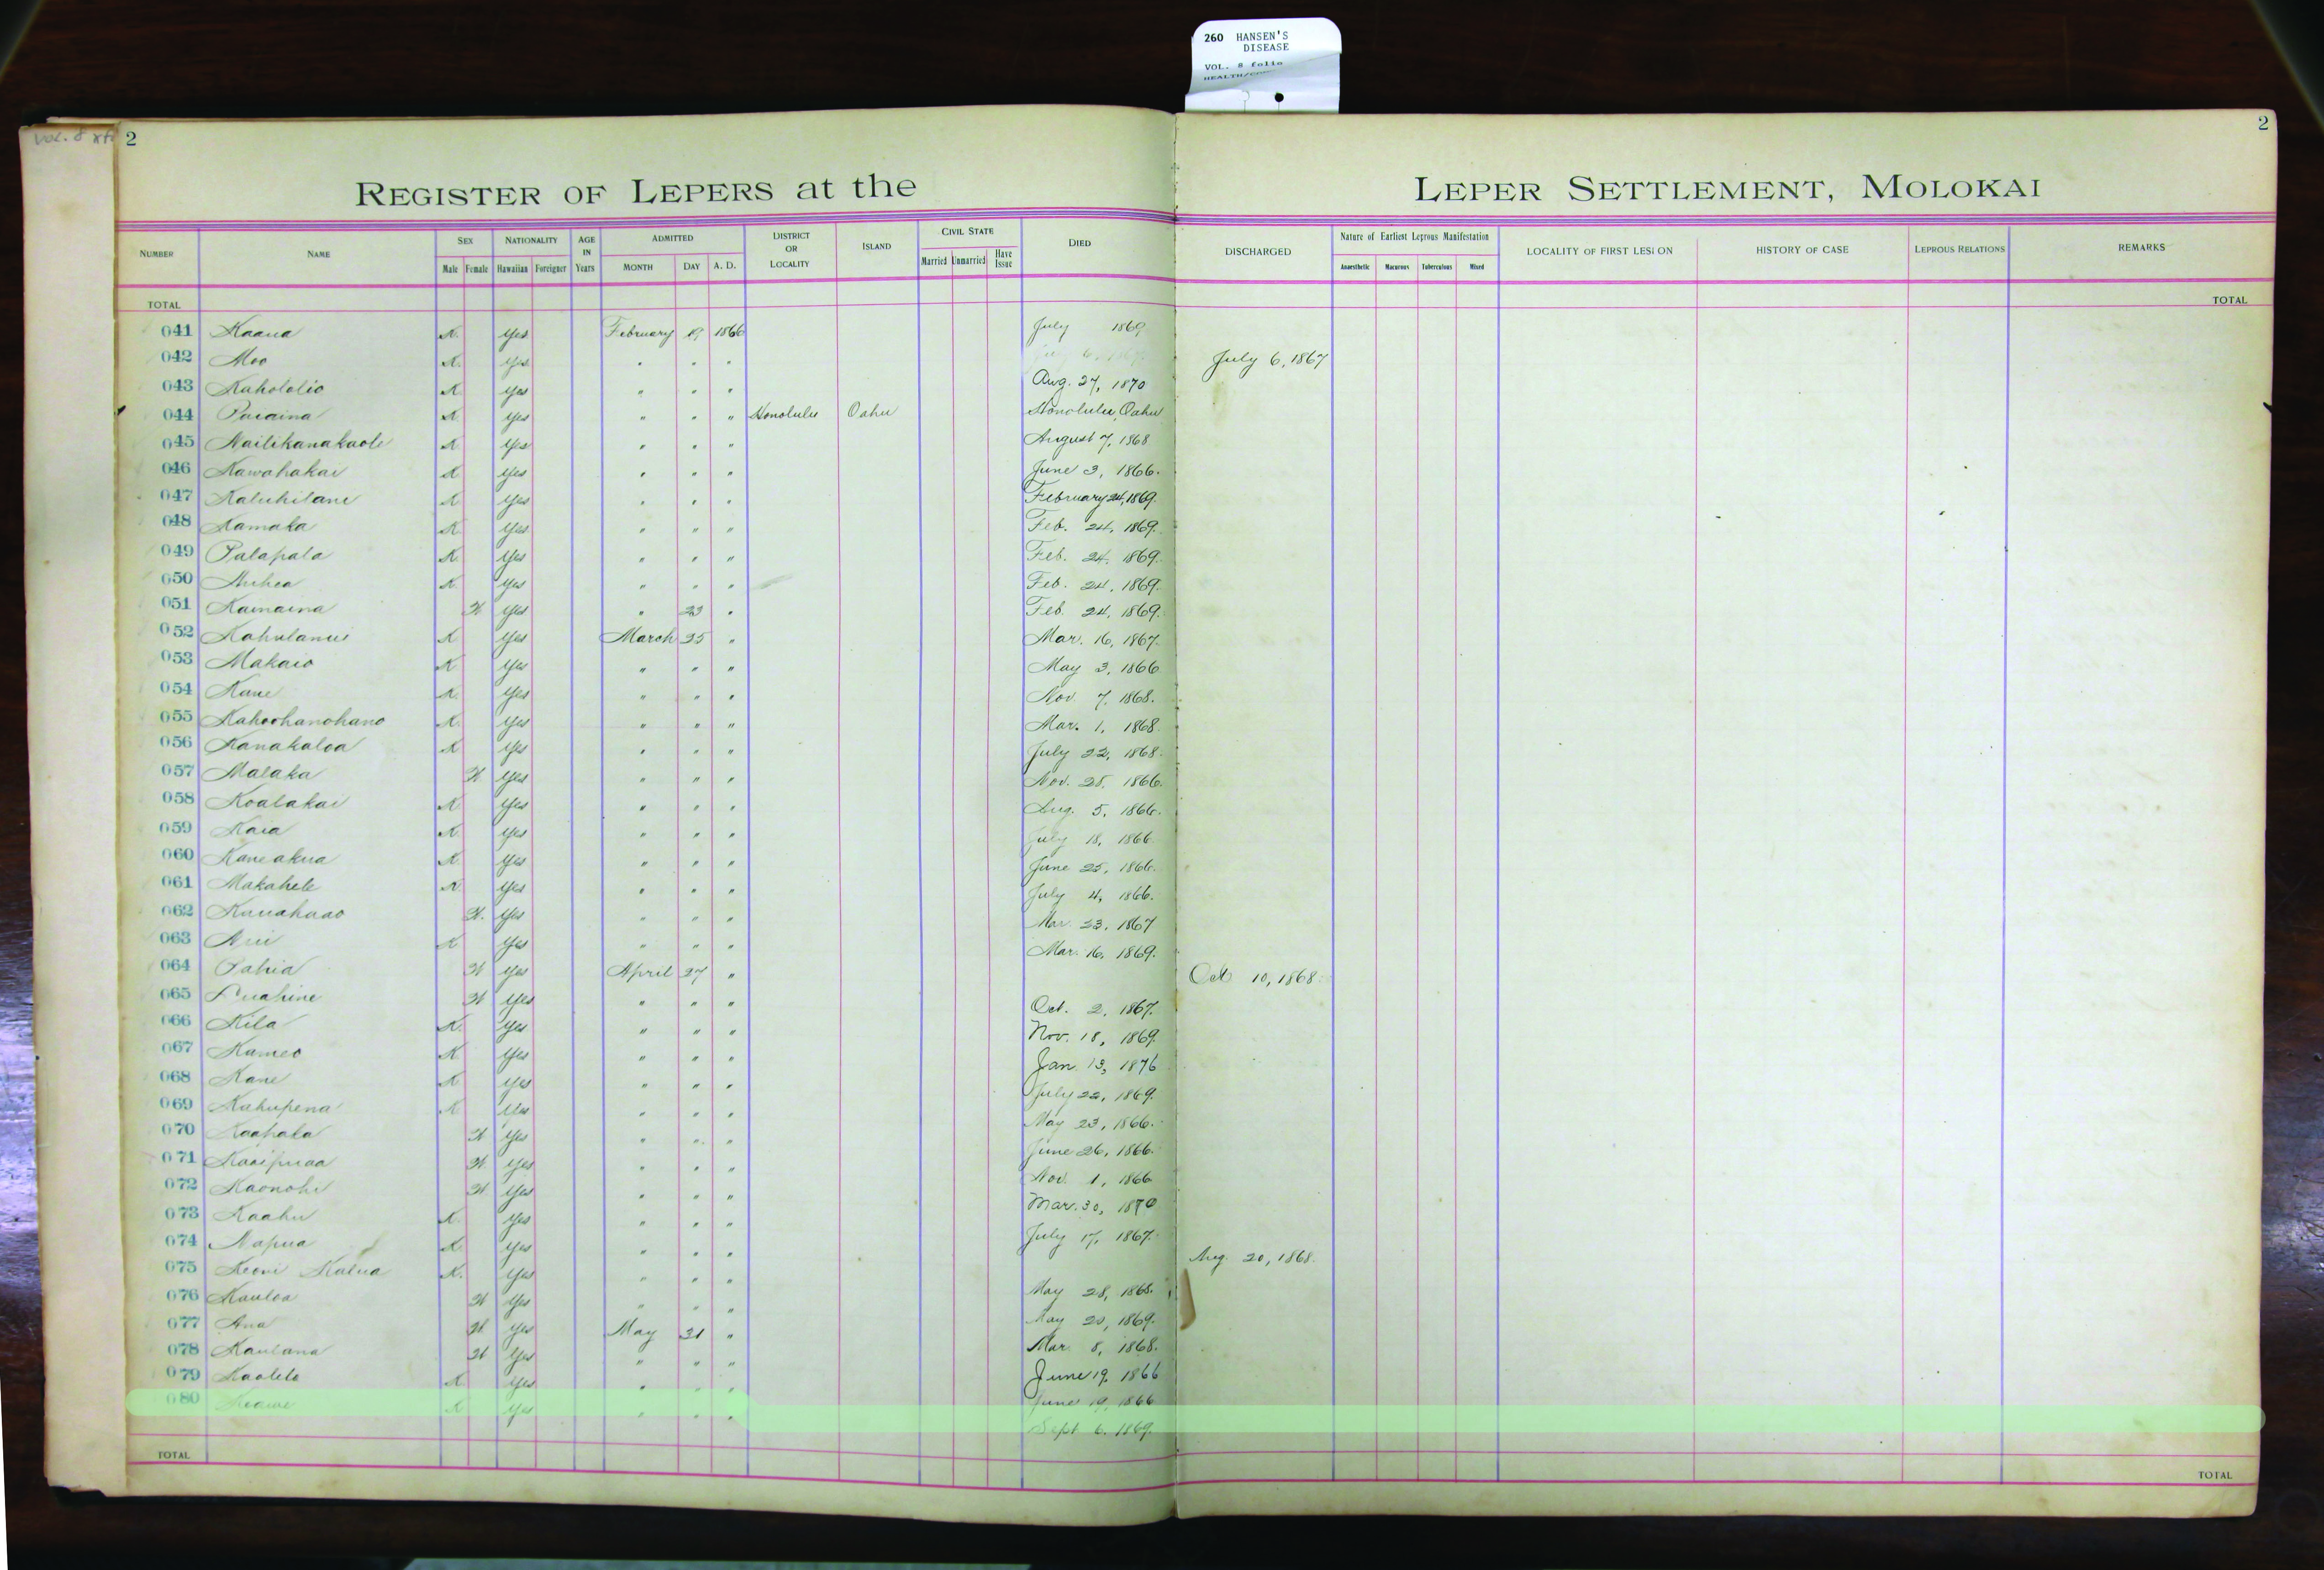 260 HANSEN'S
DISEASE
VOL. 8 folio
Vol. 8
2
2
REGISTER OF LEPERS at the LEPER SETTLEMENT, MOLOKAI
NUMBER NAME SEX NATIONALITY AGE IN Years ADMITTED DISTRICT OR LOCALITY ISLAND CIVIL STATE DIED DISCHARGED Nature of Earliest Leprous Manifestation LOCALITY OF FIRST LESION HISTORY OF CASE LEPROUS RELATIONS REMARKS
Male Female Hawaiian Foreigner MONTH DAY A. D. Married Unmarried Have Issue Anaesthetic Macurous Tuberculous Mixed
TOTAL TOTAL
041 Kaaua K. Yes February 19 1866 July 1869
042 Moo K. Yes " " " July 6, 1867
043 Kahololio K Yes " " " Aug. 27, 1870
044 Paiaina K Yes " " " Honolulu Oahu Honolulu, Oahu
045 Nailikanakaole K Yes " " " August 7, 1868
046 Kawahakai K Yes " " " June 3, 1866.
047 Kaluhilani K Yes " " " February 24, 1869.
048 Kamaka K Yes " " " Feb. 24, 1869.
049 Palapala K. Yes " " " Feb. 24, 1869.
050 Auhea K. Yes " " " Feb. 24, 1869.
051 Kamaina W Yes " 23 " Feb. 24, 1869.
052 Kahulanui K Yes March 25 " Mar. 16, 1867.
053 Makaio K Yes " " " May 3, 1866
054 Kane K. Yes " " " Nov. 7, 1868.
055 Kahoohanohano K. Yes " " " Mar. 1, 1868.
056 Kanakaloa K Yes " " " July 22, 1868.
057 Malaka W Yes " " " Nov. 28, 1866.
058 Koalakai K Yes " " " Aug. 5, 1866.
059 Kaia K. Yes " " " July 18, 1866.
060 Kaneakua K Yes " " " June 25, 1866.
061 Makahele K. Yes " " " July 4, 1866.
062 Kauahaao W. Yes " " " Mar. 23, 1867
063 K Yes " " " Mar. 16, 1869.
064 Pahia W Yes April 27 " Oct 10, 1868.
065 Luahine W Yes " " " Oct. 2, 1867.
066 Kila K. Yes " " " Nov. 18, 1869.
067 Kameo K Yes " " " Jan. 13, 1876
068 Kane K Yes " " " July 22, 1869.
069 Kahupena K Yes " " " May 23, 1866.
070 Kaapala W Yes " " " June 26, 1866.
071 Kaaipuaa W. Yes " " " Nov. 1, 1866
072 Kaonohi W Yes " " " Mar. 30, 1870
073 Kaahu K. Yes " " " July 17, 1867.
074 Napua K Yes " " " Aug. 20, 1868.
075 Keoni Kalua K. Yes " " " May 28, 1868.
076 Kauloa W Yes " " " May 20, 1869.
077 Ana W. Yes May 31 " Mar. 8, 1868.
078 Kaulana W Yes " " " June 19, 1866
079 Kaolelo K Yes " " " June 19, 1866
080 Keawe K Yes " " " Sept. 6, 1869.
TOTAL TOTAL